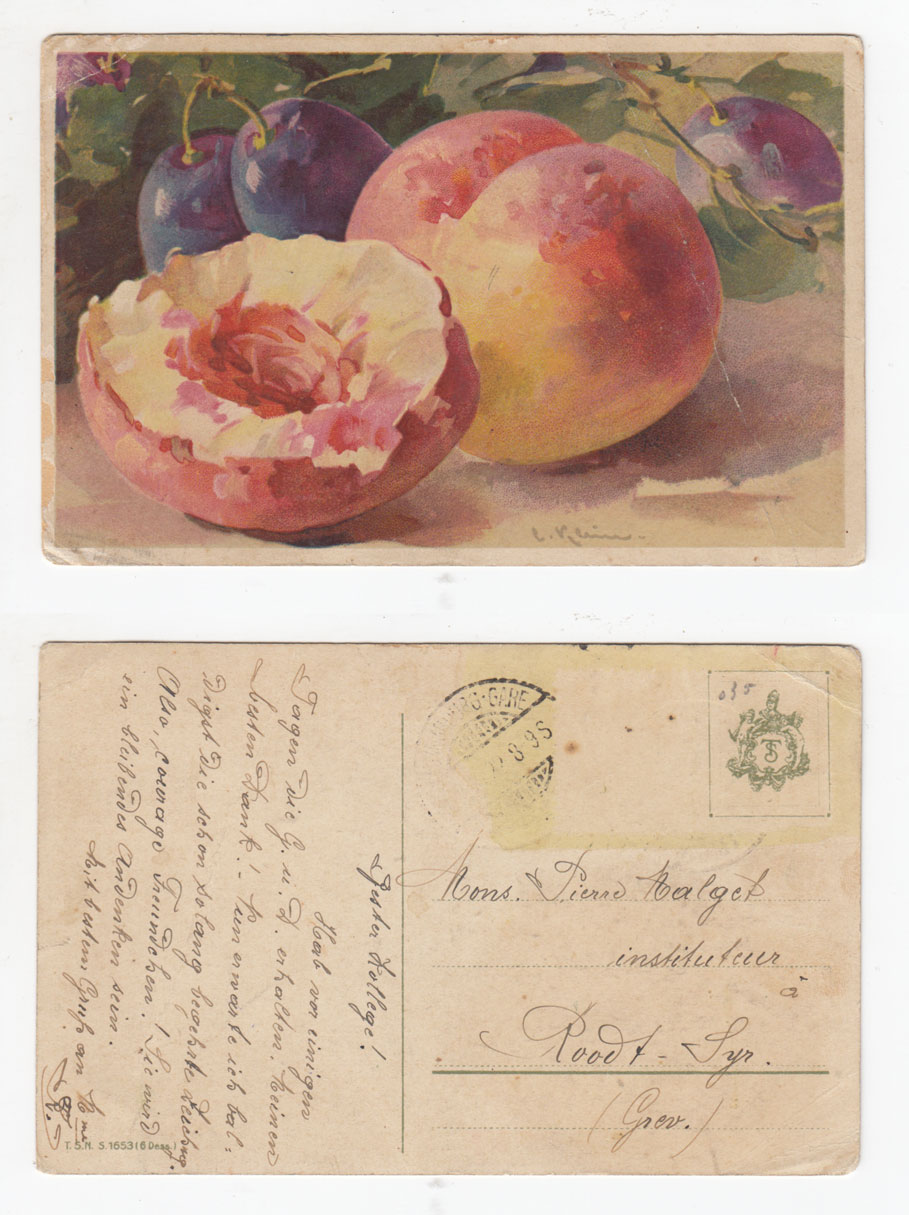 C. Klein.
LUXEMBOURG-GARE
8 9 S
035
TS
Mons. Pierre Malget
instituteur
à
Roodt-Syr.
(Grev.)
Bester Kollege!
Hab vor einigen
Tagen die G. u. D. erhalten. Meinen
besten Dank! Nun erwarte ich bal=
digst die schon so lang begehrte Zeichng.
Also, courage Freundchen! Sie wird
ein bleibendes Andenken sein.
Mit bestem Gruß an Mme
T.S.N. S.1653 (6 Dess.)